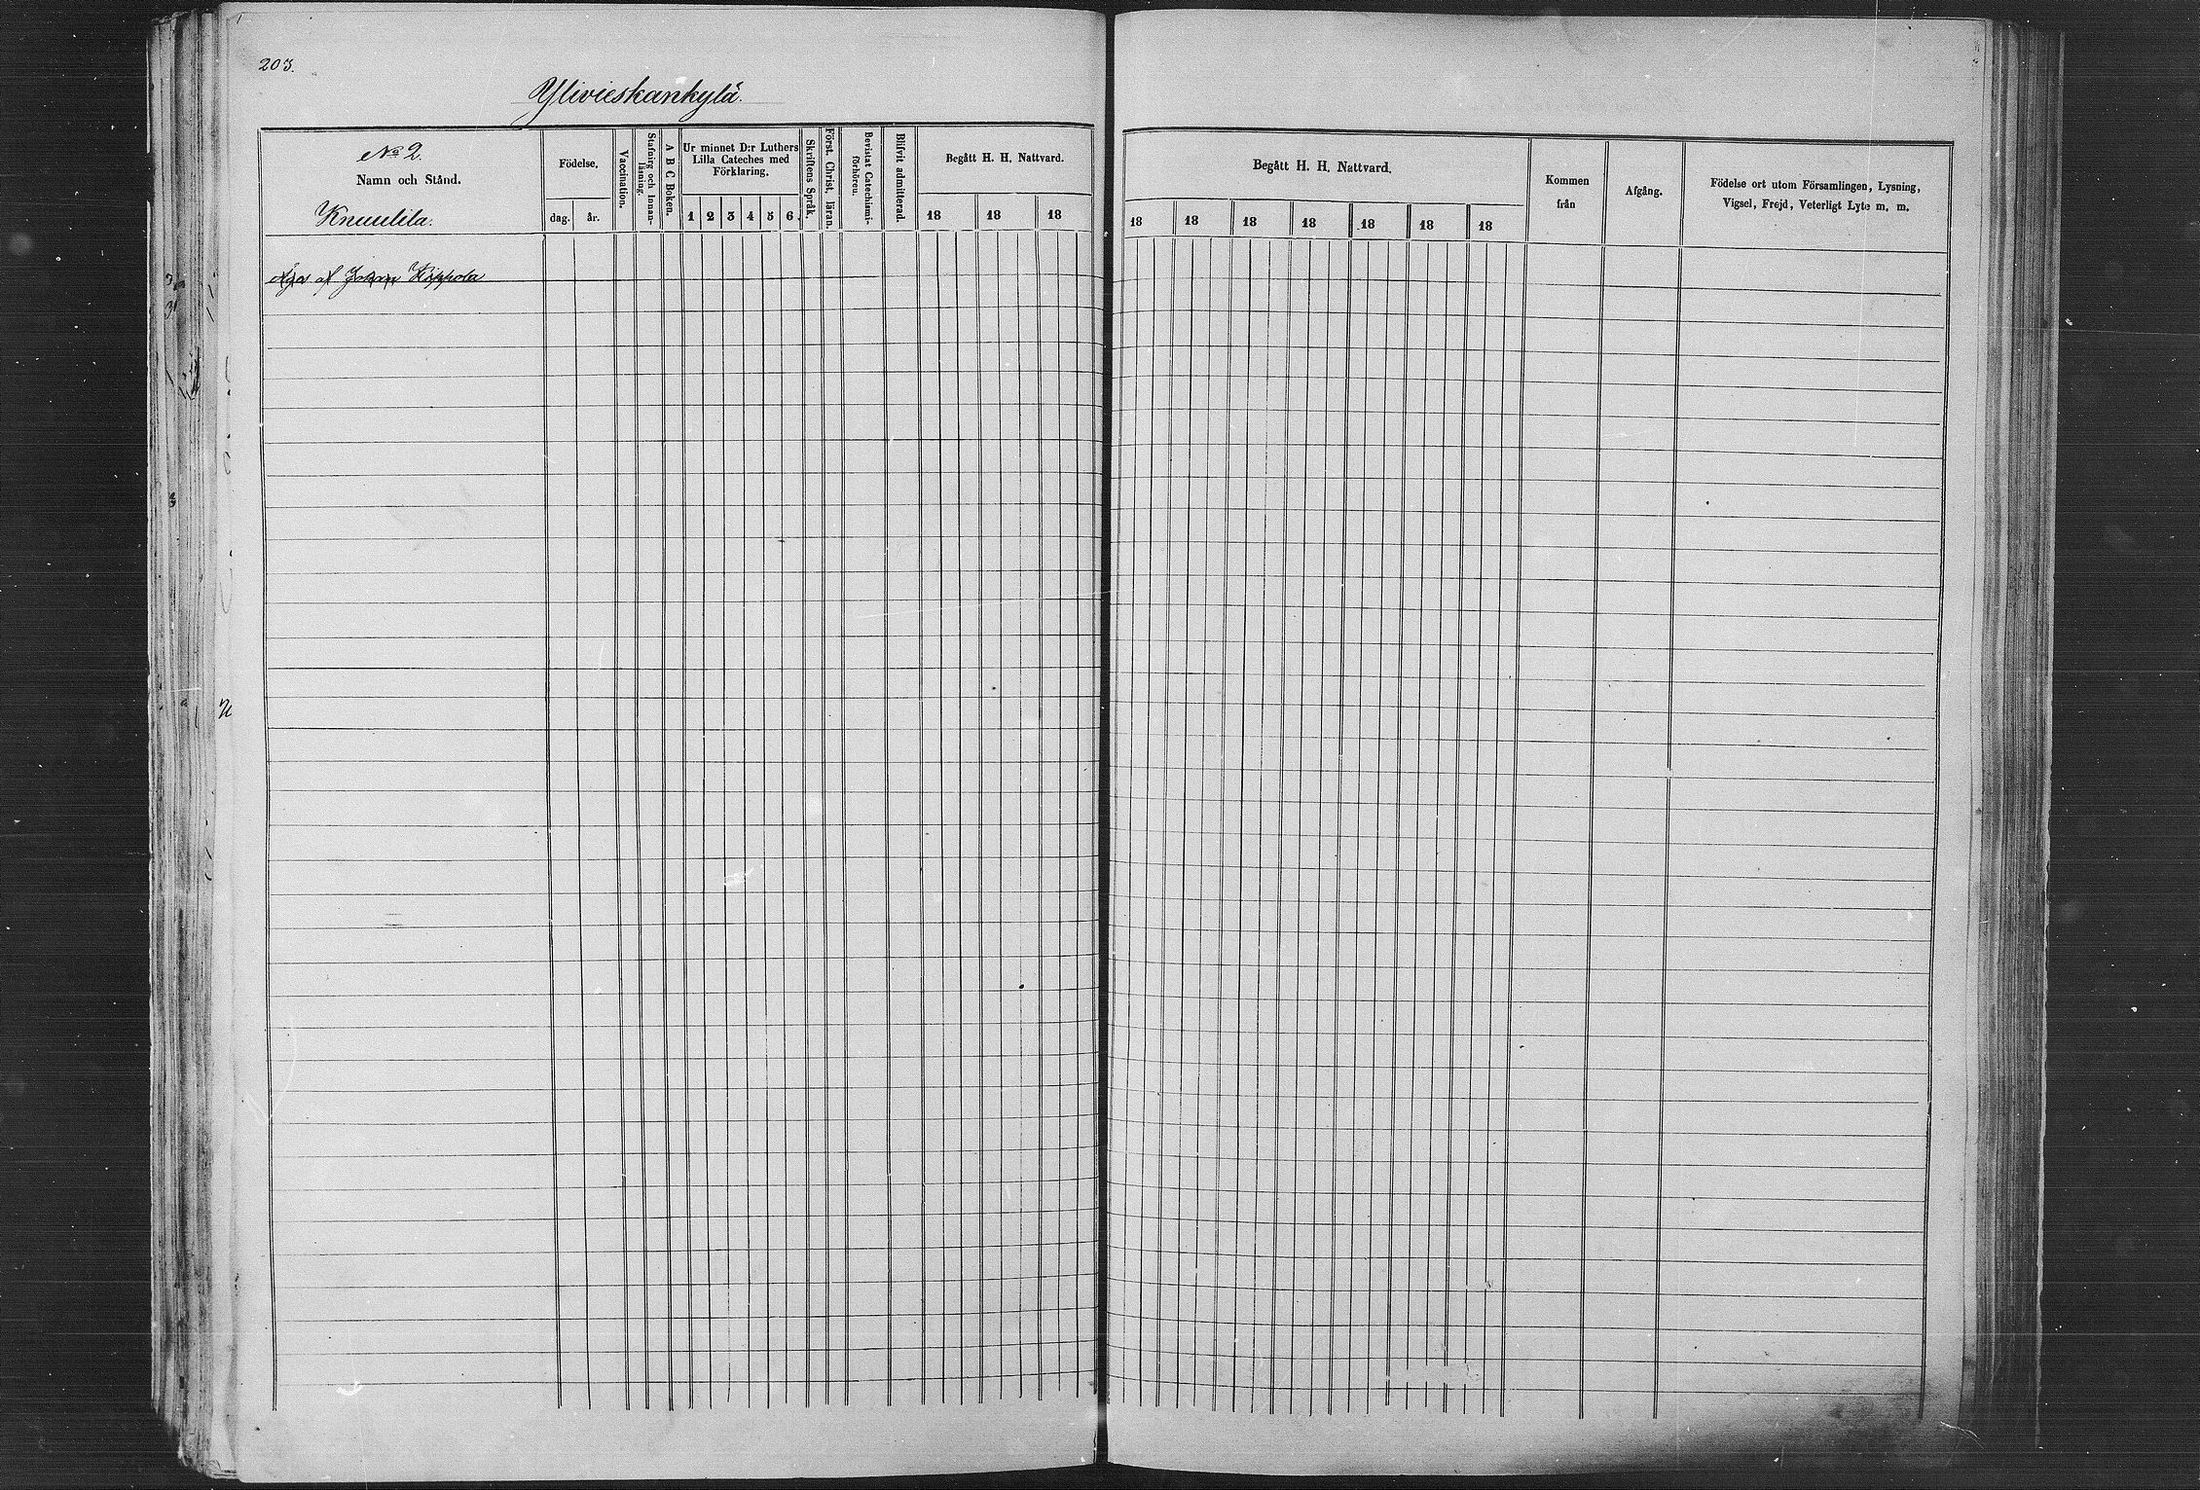 203.
Ylivieskankylä.
No 2.
Namn och Stånd.
Knuutila.
Födelse.
dag.
år.
Vaccination.
Stafning och Innanläsning.
A B C Boken.
Ur minnet D:r Luthers
Lilla Cateches med
Förklaring.
1 2 3 4 5 6.
Skriftens Språk.
Först. Christ. läran.
Bevistat Catechismi-
förhören.
Blifvit admitterad.
Begått H. H. Nattvard.
18 18 18
af Johan
Begått H. H. Nattvard.
18 18 18 18 18 18 18
Kommen
från
Afgång.
Födelse ort utom Församlingen, Lysning,
Vigsel, Frejd, Veterligt Lyte m. m.